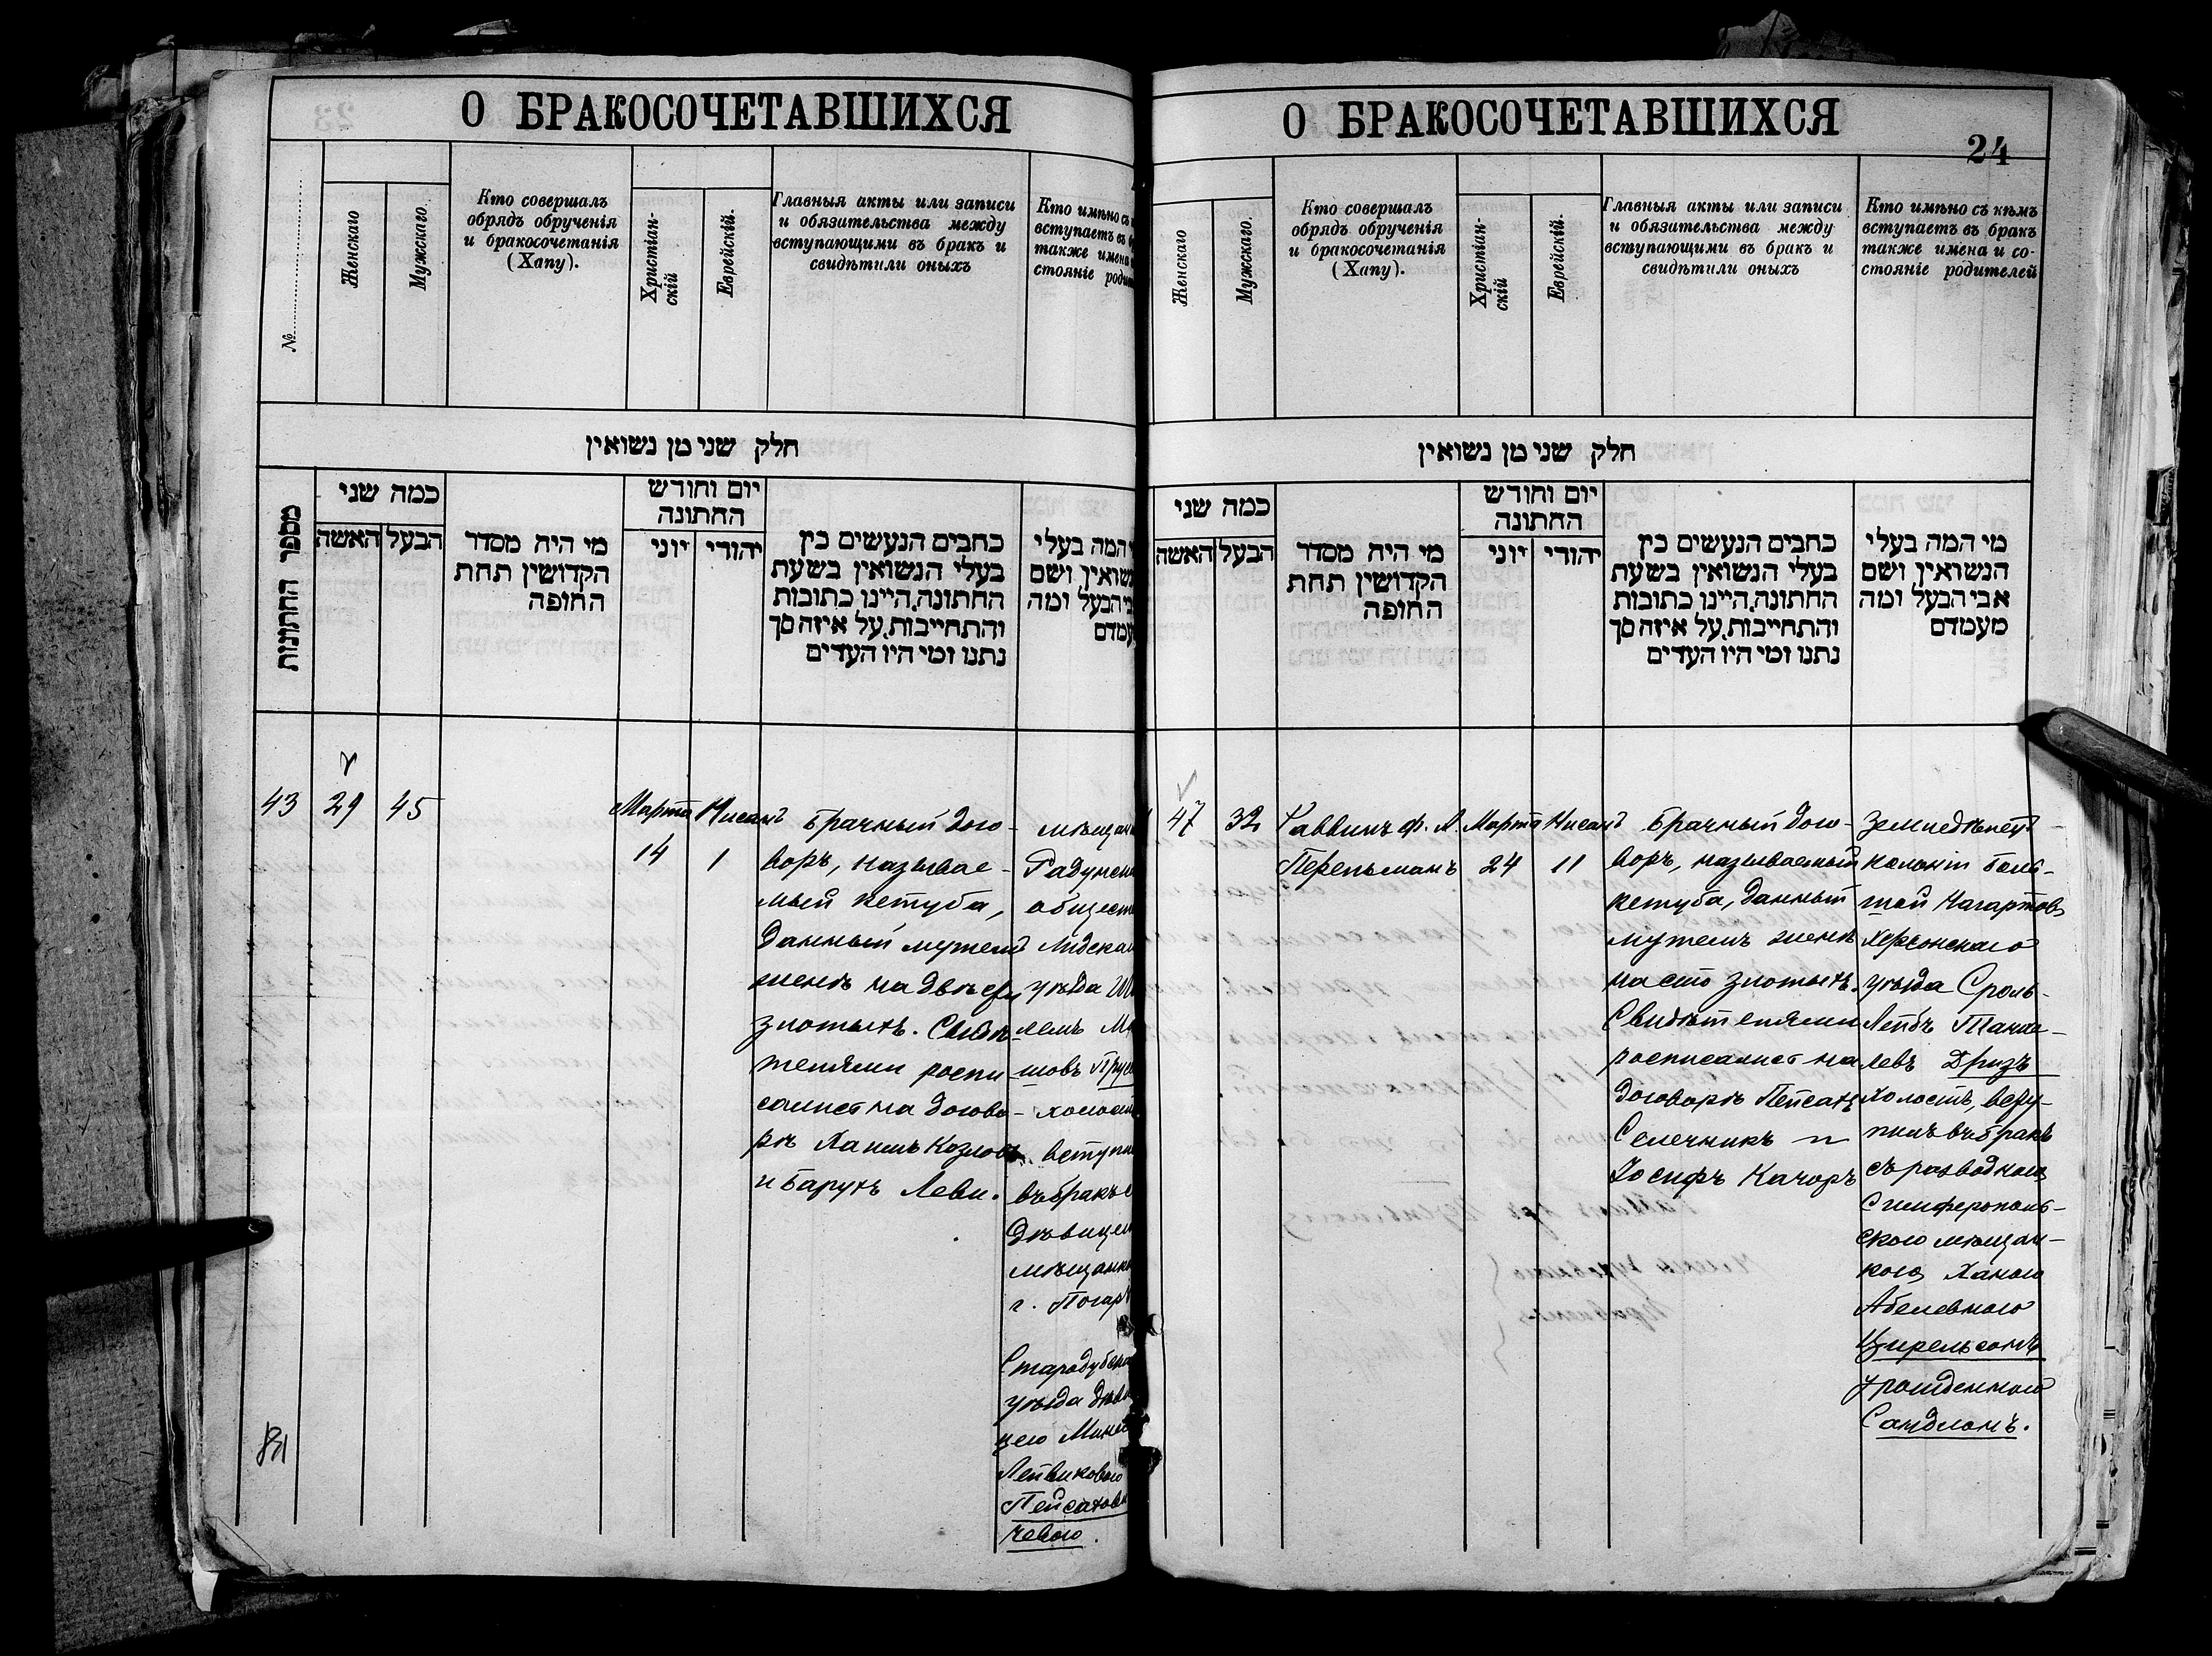 О БРАКОСОЧЕТАВШИХСЯ
№
Женскаго
Мужскаго
Кто совершалъ
обрядъ обрученія
и бракосочетанія
(Хапу).
Христіан-
скій
Еврейскій.
Главныя акты или записи
и обязательства между
вступающими въ бракъ и
свидѣтили оныхъ
Кто имѣно съ
вступаетъ въ
также имена
стояніе
חלק שני מן נשואין
מספר החתונות
כמה שני
האשה
הבעל
מי היה מסדר
הקדושין תחת
החופה
יום וחודש
החתונה
יוני
יהודי
כתבים הנעשים בין
בעלי הנשואין בשעת
החתונה,היינו כתובות
והתחייבות,על איזה סך
נתנו ומי היו העדים
המה בעלי
ושם
הבעל ומה
43
29
45
Марта
14
Нисанъ
1
Брачный дого-
воръ, называе-
мый кетуба,
данный мужемъ
женѣ на двѣсти
злотыхъ. Свидѣ-
телями роспи-
сались на догово-
рѣ Хаимъ Козловъ
и Барухъ Леви.
общест
уѣзда
лемъ
шовъ
холост
вступи
въ бракъ
дѣвицей
г. Погар
уѣзда
Лейвиковою
Пейсахови
чевою.
О БРАКОСОЧЕТАВШИХСЯ
24
Женскаго
Мужскаго.
Кто совершалъ
обрядъ обрученія
и бракосочетанія
(Хапу).
Христіан-
скій
Еврейскій.
Главныя акты или записи
и обязательства между
вступающими въ бракъ и
свидѣтили оныхъ
Кто имѣно съ кѣмъ
вступаетъ въ бракъ
также имена и со-
стояніе родителей
חלק שני מן נשואין
כמה שני
האשה
הבעל
מי היה מסדר
הקדושין תחת
החופה
יום וחודש
החתונה
יוני
יהודי
כתבים הנעשים בין
בעלי הנשואין בשעת
החתונה,היינו כתובות
והתחייבות,על איזה סך
נתנו ומי היו העדים
מי המה בעלי
הנשואין ושם
אבי הבעל ומה
מעמדם
47
32
Раввинъ Ф. Л.
Перельманъ
Марта
24
Нисанъ
11
Брачный дого-
воръ, называемый
кетуба, данный
мужемъ женѣ
на сто злотыхъ.
Свидѣтелями
росписались на
договорѣ Пейсахъ
Селечникъ и
Іосифъ Качоръ
Земледѣлецъ
колоніи Боль-
шой Нагартовъ
Херсонскаго
уѣзда Сроль-
Лейбъ Танхе-
левъ Дризъ
холостъ, всту-
пилъ въ бракъ
съ разводкою
Симферополь-
скою мѣщан-
кою Ханою
Абелевною
Цирельсонъ
урожденною
Сандломъ.